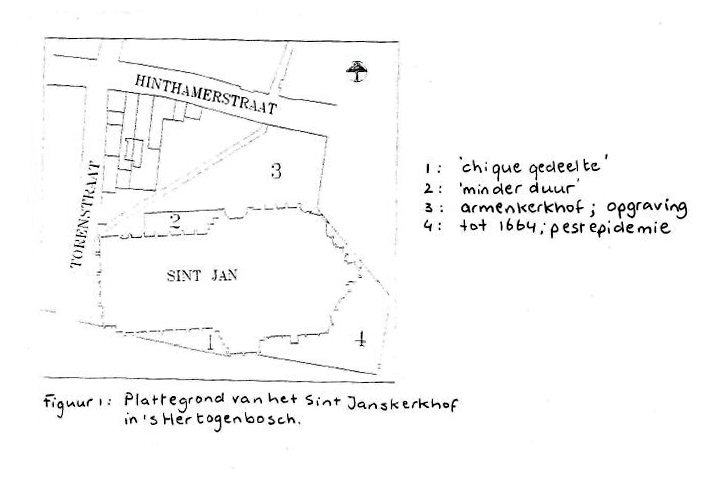 HINTHAMERSTRAAT
TORENSTRAAT
3
2
SINT JAN
1
4
1: 'chique gedeelte'
2: 'minder duur'
3: armenkerkhof; opgraving
4: tot 1664; pestepidemie
Figuur 1: Plattegrond van het Sint Janskerkhof
in 's Hertogenbosch.